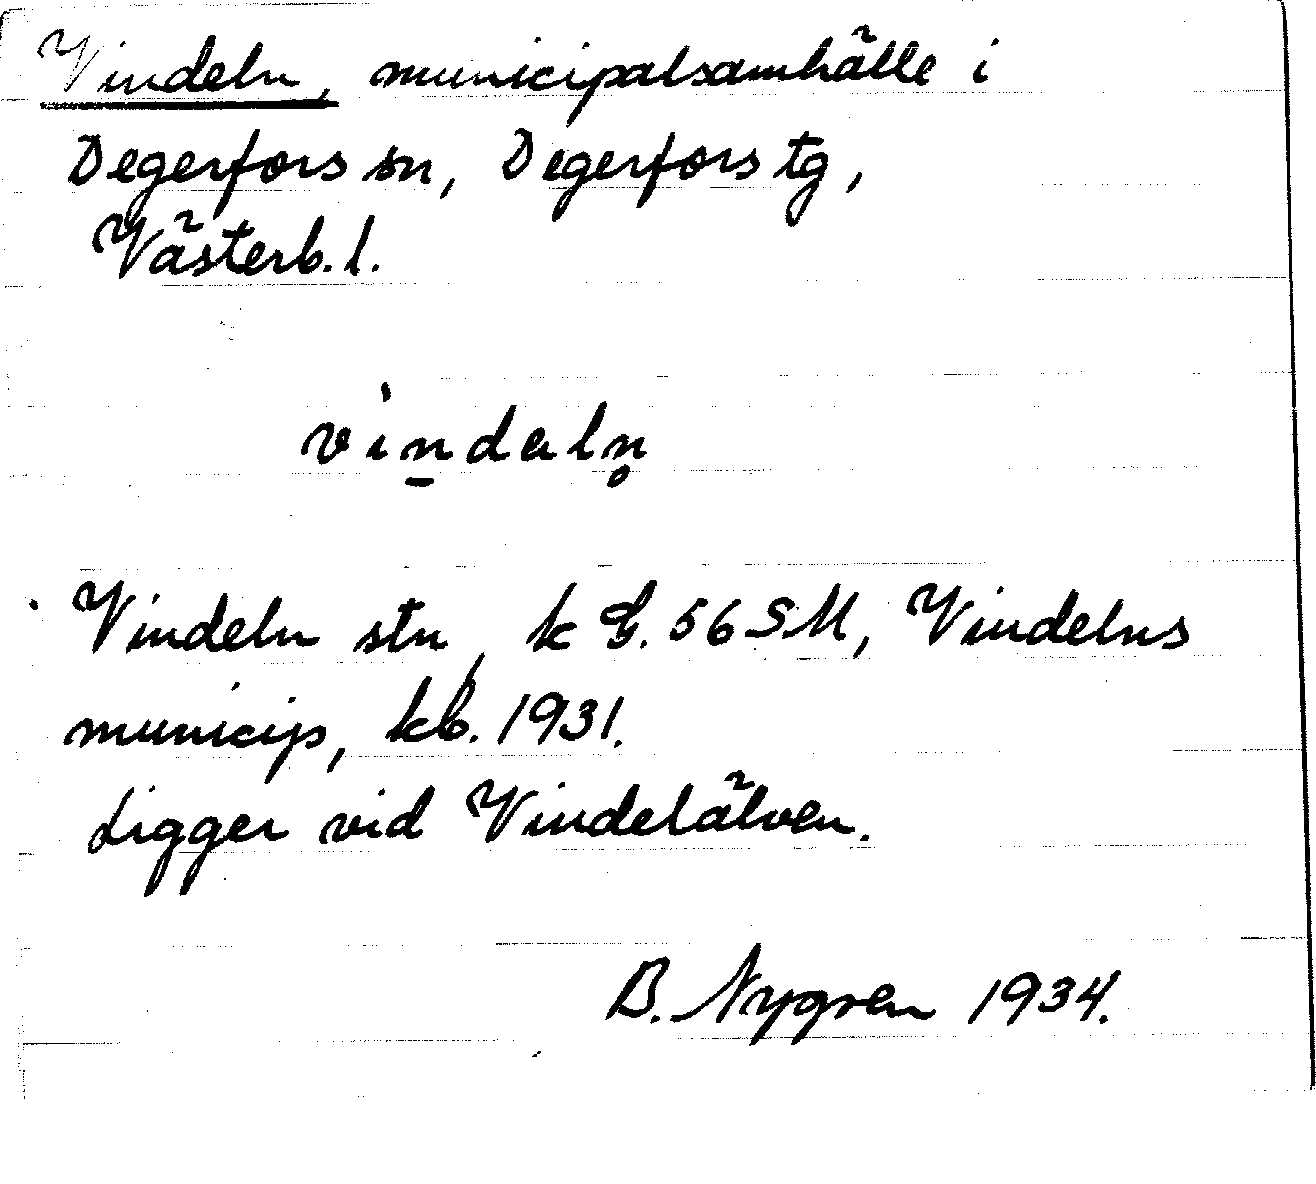 Vindeln, municipalsamhälle i
Degerfors sn, Degerfors tg,
Västerb. l.
vi̍n̠daln̥
Vindeln stn, k G. 56 SM, Vindelns
municip, kb. 1931.
Ligger vid Vindelälven.
B. Nygren 1934.